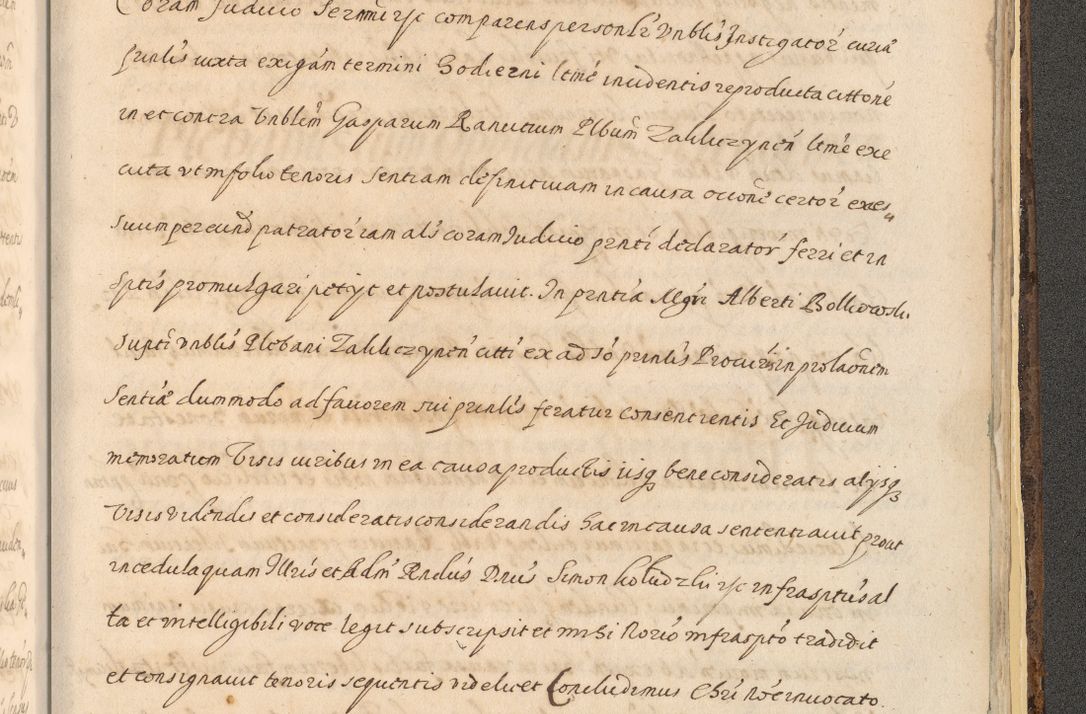 Coram Judicio Sermi &c comparens personlr Vnblis Instigator curiæ
prnlis iuxta exigām termini hodierni ltme incidentis reproducta cittone
in et contra Vnblem Gasparum Ranucium Plbum Zakliczynen̄ ltme exe
cuta vt in folio tenoris sentiam definitiuam in causa occone certor exes„
suum per eund patrator iam als coram Judicio prnti declarator ferri et in
sptis promulgari petyt et postulauit. In prntia Mgri Alberti Bolkowski
supti Vnblis Plebani Zakliczynen̄ citti ex ad so prnlis Procuris in prolaonem
sentiæ dummodo ad fauorem sui prnlis feratur consentientis Et Judicium
memoratum Visis iuribus in ea causa productis iisq bene consideratis alijsq
Visis videndis et consideratis considerandis hac in causa sententiauit prout
in cedula quam Illris et Adm Rndus Dnus Simon Kołudzki &c infrasptus al
ta et intelligibili voce legit subscripsit et mihi Norio infraspto tradidit
et consignauit tenoris sequentis videlicet Concludimus Chri Noe inuocato.